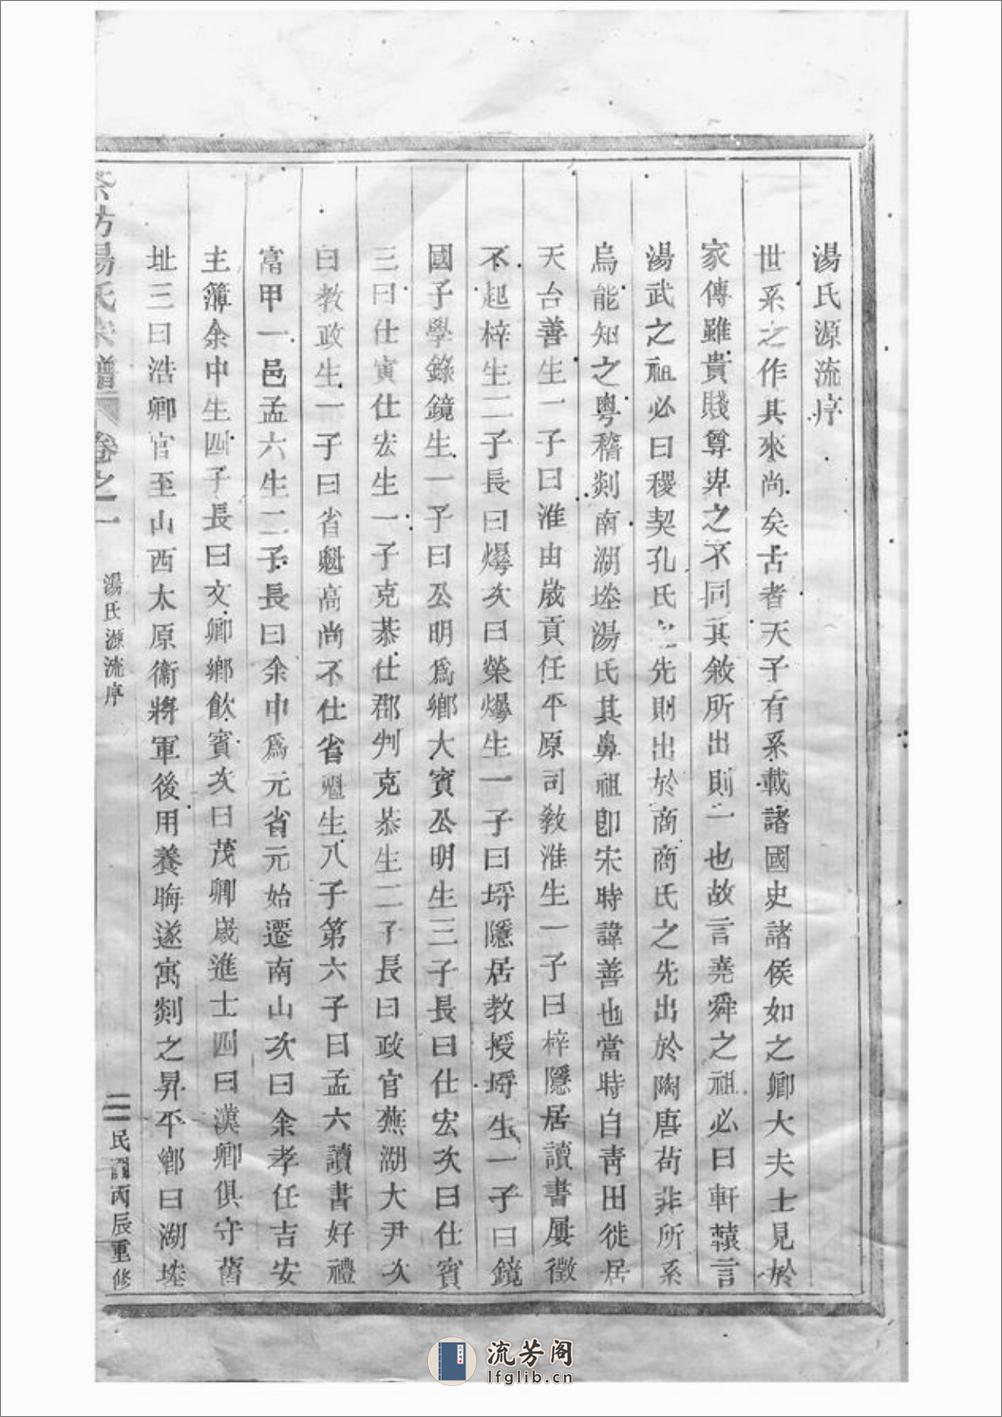 湯氏源流序
世系之作其來尚矣古者天子有系載諸國史諸侯如之卿大夫士見於
家傳雖貴賤尊卑之不同其敘所出則一也故言堯舜之祖必曰軒轅言
湯武之祖必曰稷契孔氏之先則出於商商氏之先出於陶唐茍非所系
烏能知之粵稽剡南湖塍湯氏其鼻祖卽宋時諱善也當時自靑田徙居
天台善生一子曰淮由歲貢任平原司敎淮生一子曰梓隱居讀書屢徵
不起梓生二子長曰爆次曰榮爆生一子曰埓隱居教授埓生一子曰鏡
國子學錄鏡生一子曰公明爲鄉大賓公明生三子長曰仕宏次曰仕賓
三曰仕寅仕宏生一子克恭仕郡判克恭生二子長曰政官蕪湖大尹次
曰教政生一子曰省魁高尚不仕省魁生八子第六子曰孟六讀書好禮
富甲一邑孟六生二子長曰余中爲元省元始遷南山次曰余孝任吉安
主簿余中生四子長曰文卿鄉飮賓次曰茂卿歲進士四曰漢卿俱守舊
址三曰浩卿官至山西太原衞將軍後用養晦遂寓剡之昇平鄉曰湖塍
茶坊湯氏宗譜 卷之一 湯氏源流序 三 民國丙辰重修
流芳阁
lfglib.cn